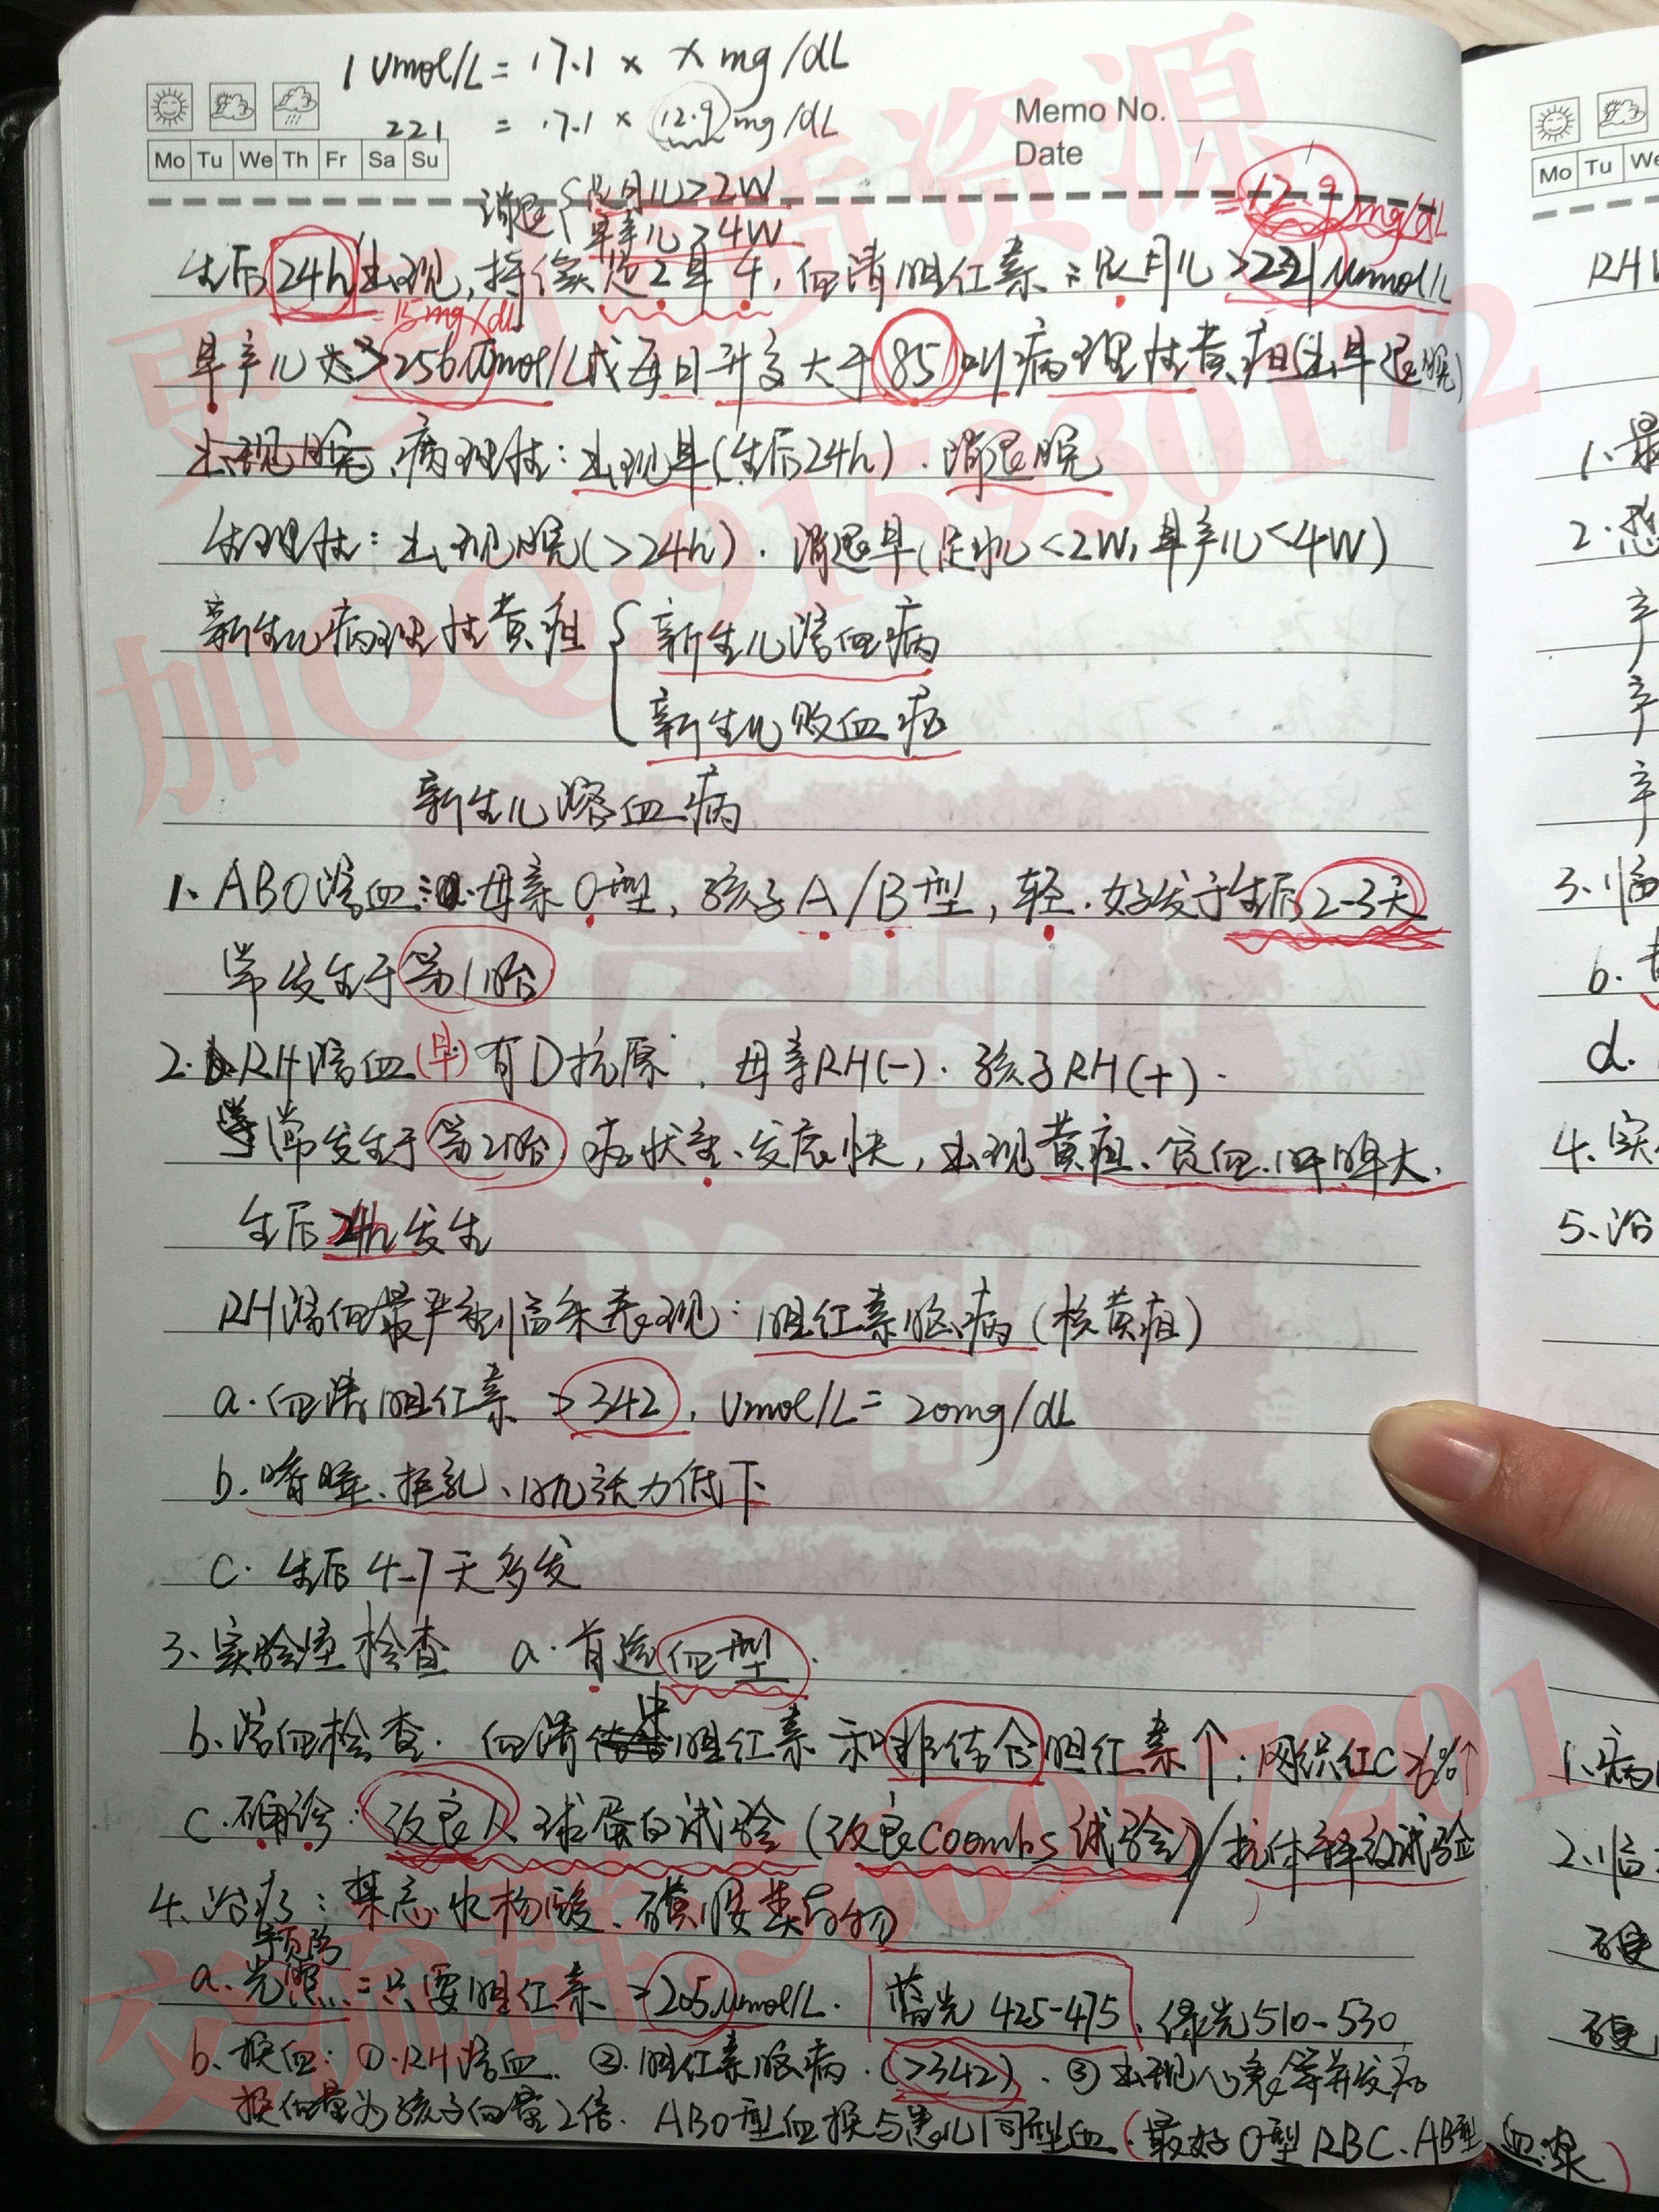 1 Umol/L = 17.1 × x mg/dL
221 = 17.1 × 12.9 mg/dL
Memo No.
Date / /
Mo Tu We Th Fr Sa Su
消退{足月儿>2W
早产儿>4W
=12.9mg/dL
生后24h出现,持续足2早4,血清胆红素:足月儿>221μmol/L
=15mg/dL
早产儿>256Umol/L或每日升高大于85叫病理性黄疸(出早退晚)
病理性:出现早(生后24h).消退晚
生理性:出现晚(>24h).消退早(足月儿<2W,早产儿<4W)
新生儿病理性黄疸{新生儿溶血病
新生儿败血症
新生儿溶血病
1、ABO溶血:a.母亲O型,孩子A/B型,轻.好发于生后2-3天
常发生于第1胎
2.RH溶血(早)有D抗原.母亲RH(-).孩子RH(+).
常发生于第2胎.症状重、发展快,出现黄疸、贫血、肝脾大.
生后24h发生
RH溶血最严重临床表现:胆红素脑病(核黄疸)
a.血清胆红素>342.Umol/L=20mg/dL
b.嗜睡、拒乳、肌张力低下
c.生后4-7天多发
3、实验室检查 a.首选血型.
b.溶血检查.血清胆红素和非结合胆红素↑;网织红C>6%↑
c.确诊:改良人球蛋白试验(改良Coombs试验)/抗体释放试验
4.治疗:禁忌水杨酸、磺胺类药物
预防
a.光照:只要胆红素>205μmol/L.蓝光425-475、绿光510-530
b.换血:①.RH溶血.②.胆红素脑病.(>342).③出现心衰等并发症
换血量为孩子血量2倍.ABO型血换与患儿同型血(最好O型RBC、AB型血浆)
更多优质资源
加QQ:915930172
医凯学歌
交流群:566957201
Mo Tu We
RH
1.最
2.患
3.临
b.
d.
4.实
5.治
1.病
2.临
硬
硬